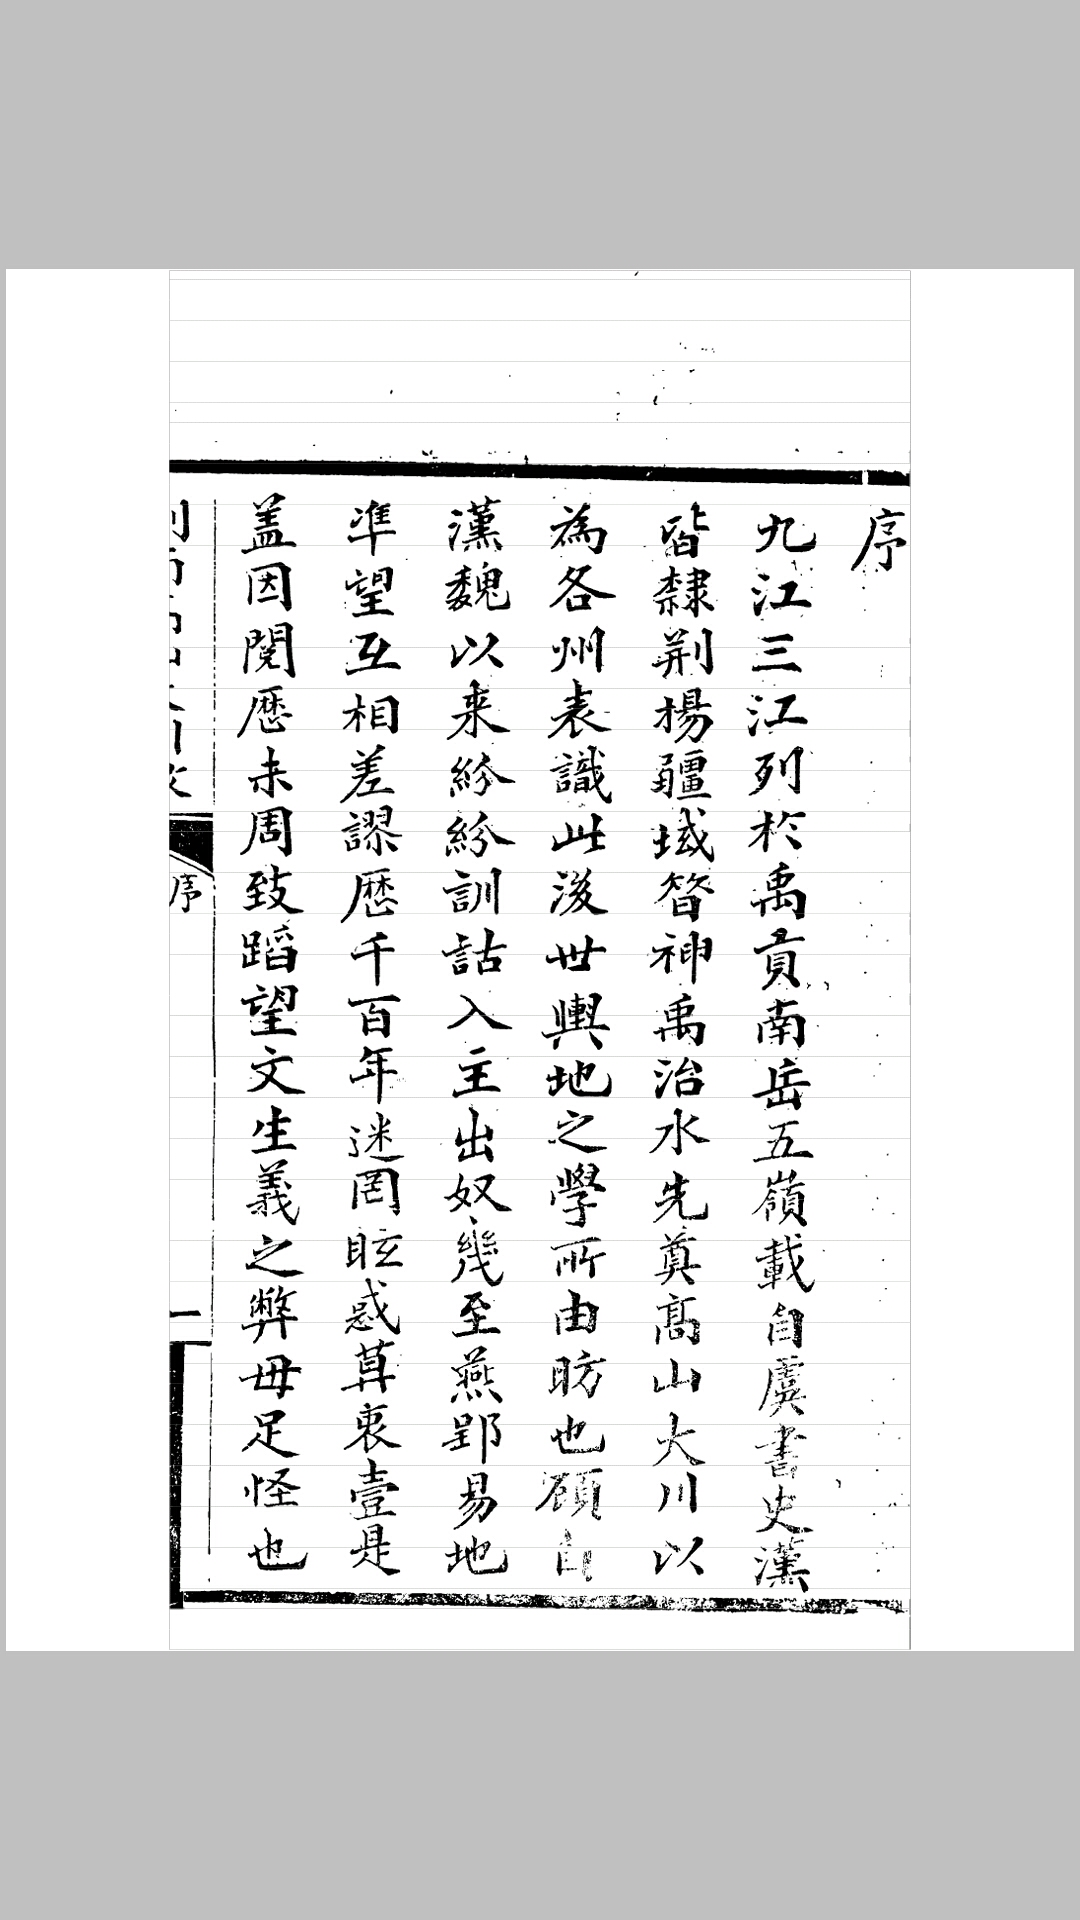 序
九江三江列於禹貢南岳五嶺載自虞書史漢
皆隸荆楊疆域昝神禹治水先奠高山大川以
為各州表識此後世輿地之學所由昉也顧自
漢魏以来紛紛訓詁入主出奴幾至燕郢易地
準望互相差謬歷千百年迷罔眩惑莫衷壹是
盖因閱歷未周致蹈望文生義之弊毋足怪也
序
一